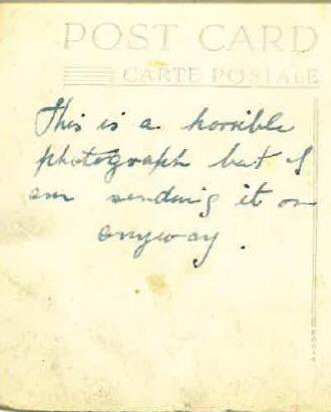 POST CARD
CARTE POSTALE
This is a horrible
photograph but I
am sending it on
anyway.